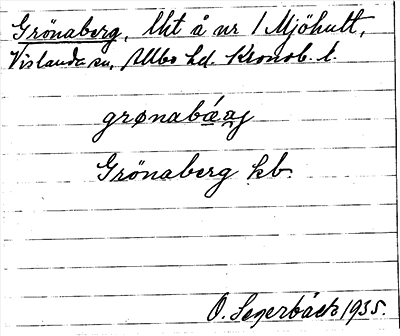 Grönaberg, lht å nr 1 Mjöhult,
Vislanda sn, Allbo hd. Kronob. l.
grønabá̤a̤j
Grönaberg kb.
O. Segerbäck 1935.